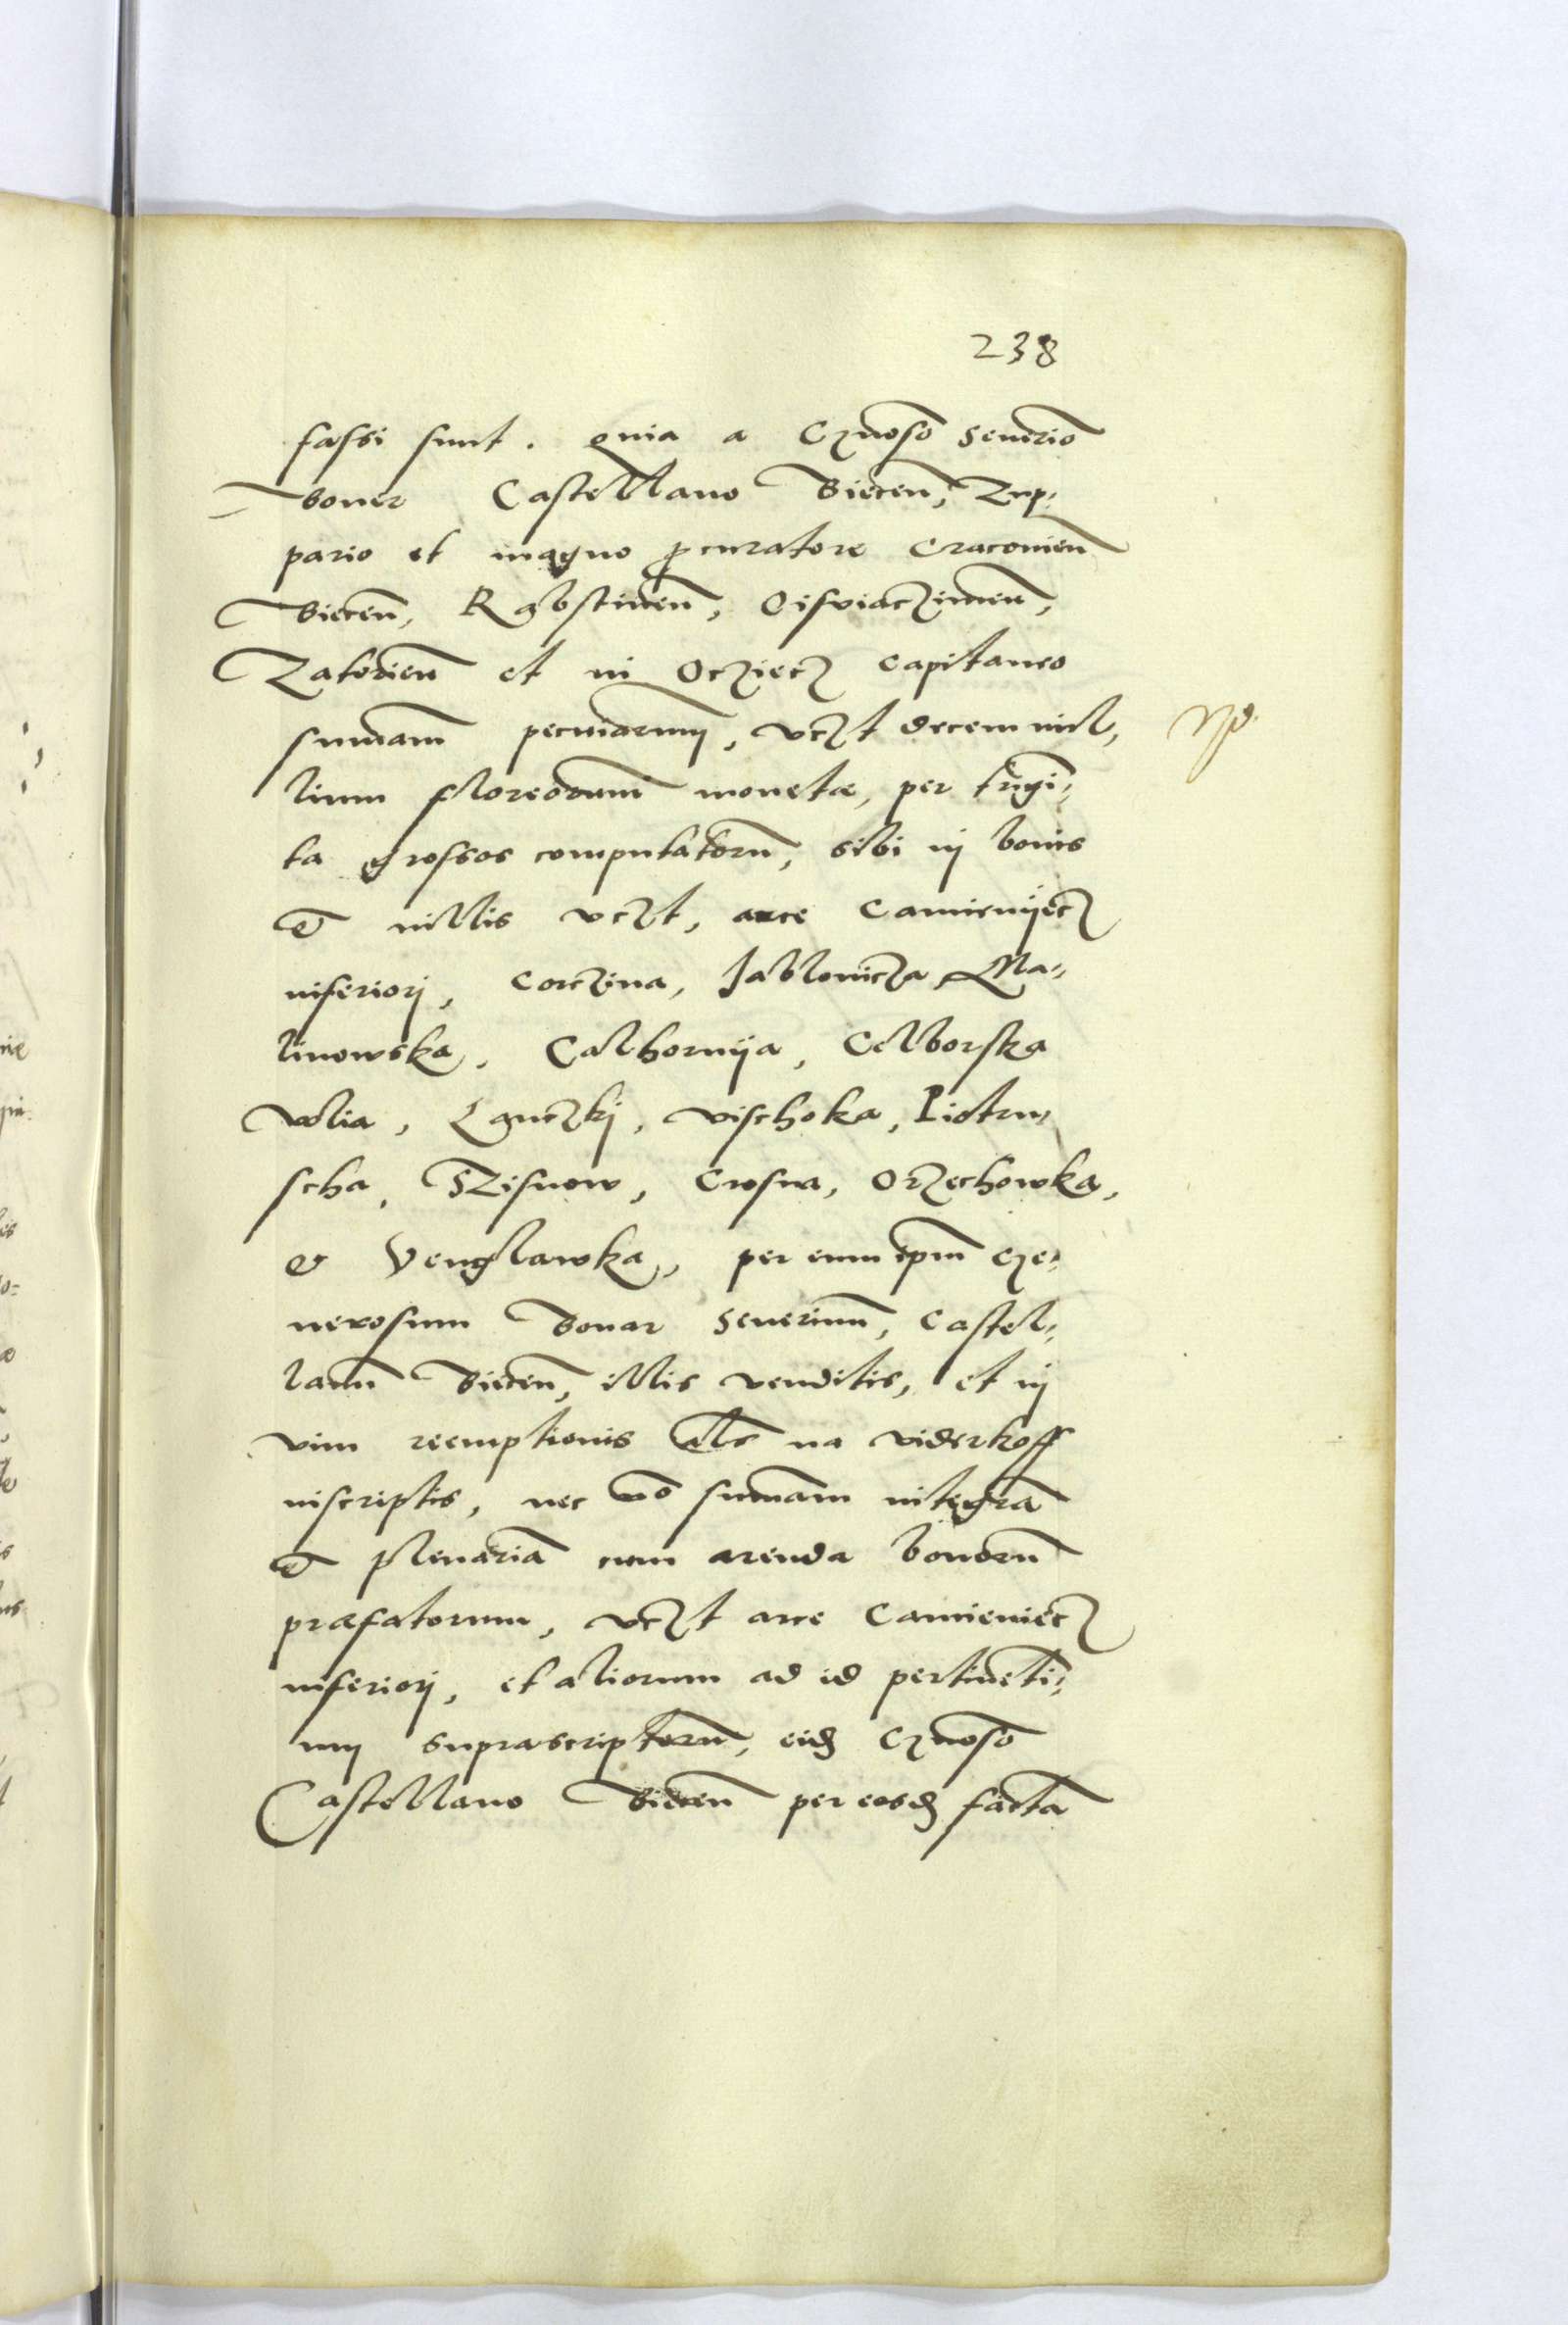 238
fassi sunt. quia a Gnoso Seuerio
Boner Castellano Biecen̄, Zup-
pario et magno ꝓcuratore Cracouien̄
Biecen̄, Rabstinen̄, Oisviaczimen̄,
Zatorien̄ et in Oczięcz Capitaneo
sum̄am pecuniarum, vczt decem mil,
lium florēorum monetæ, per trigī-
ta grossos computatorū, sibi in bonis
et villis vczt, arce Camieniecz
inferiori, Corczina, Jablonicza Ma-
linowska, Calhornija, Celborska
wolia, Ląnczki, vischoka, Piotru-
scha, Szisnow, Crosna, Orzechowka,
& Venglawka, per eum ipm̄ Ge-
nerosum Bonar Seuerinum, Castel-
lanū Biecen̄, illis venditis, et in
vim reemptionis als na viderkoff
inscriptis, nec nō sum̄am integrā
et plenariā cum arenda bonorū
præfatorum, vczt arce Camieniecz
inferiori, et aliorum ad id pertinēti-
um suprascriptorū, eidꝫ Gnoso
Castellano Biecen̄ per eosdꝫ factā